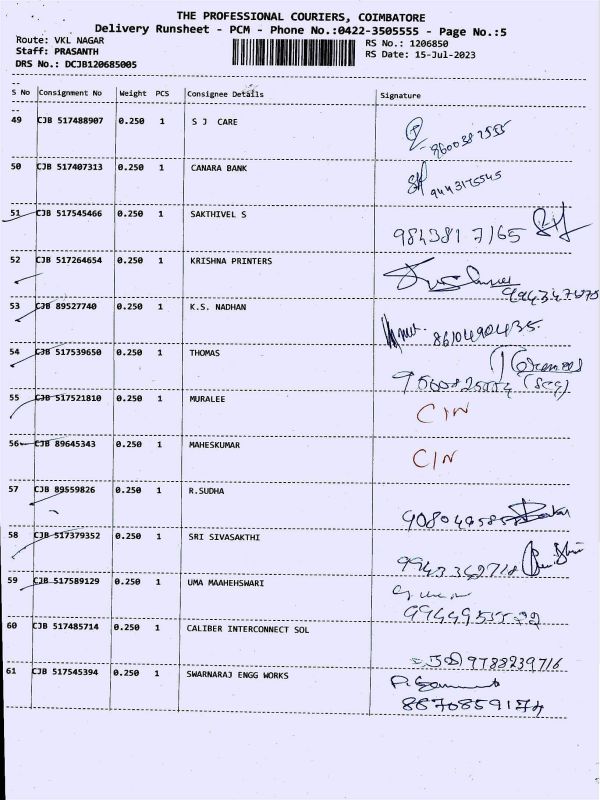 THE PROFESSIONAL COURIERS, COIMBATORE
Delivery Runsheet - PCM - Phone No.:0422-3505555 - Page No.:5
Route: VKL NAGAR RS No.: 1206850
Staff: PRASANTH RS Date: 15-Jul-2023
DRS No.: DCJB120685005
S No Consignment No Weight PCS Consignee Details Signature
49 CJB 517488907 0.250 1 S J CARE
50 CJB 517407313 0.250 1 CANARA BANK 9443175545
51 CJB 517545466 0.250 1 SAKTHIVEL S 9843817165
52 CJB 517264654 0.250 1 KRISHNA PRINTERS
53 CJB 89527740 0.250 1 K.S. NADHAN 8610490435
54 CJB 517539650 0.250 1 THOMAS
55 CJB 517521810 0.250 1 MURALEE C/N
56 CJB 89645343 0.250 1 MAHESKUMAR C/N
57 CJB 89559826 0.250 1 R.SUDHA
58 CJB 517379352 0.250 1 SRI SIVASAKTHI
59 CJB 517589129 0.250 1 UMA MAAHEHSWARI
60 CJB 517485714 0.250 1 CALIBER INTERCONNECT SOL 9788239716
61 CJB 517545394 0.250 1 SWARNARAJ ENGG WORKS 8870859174